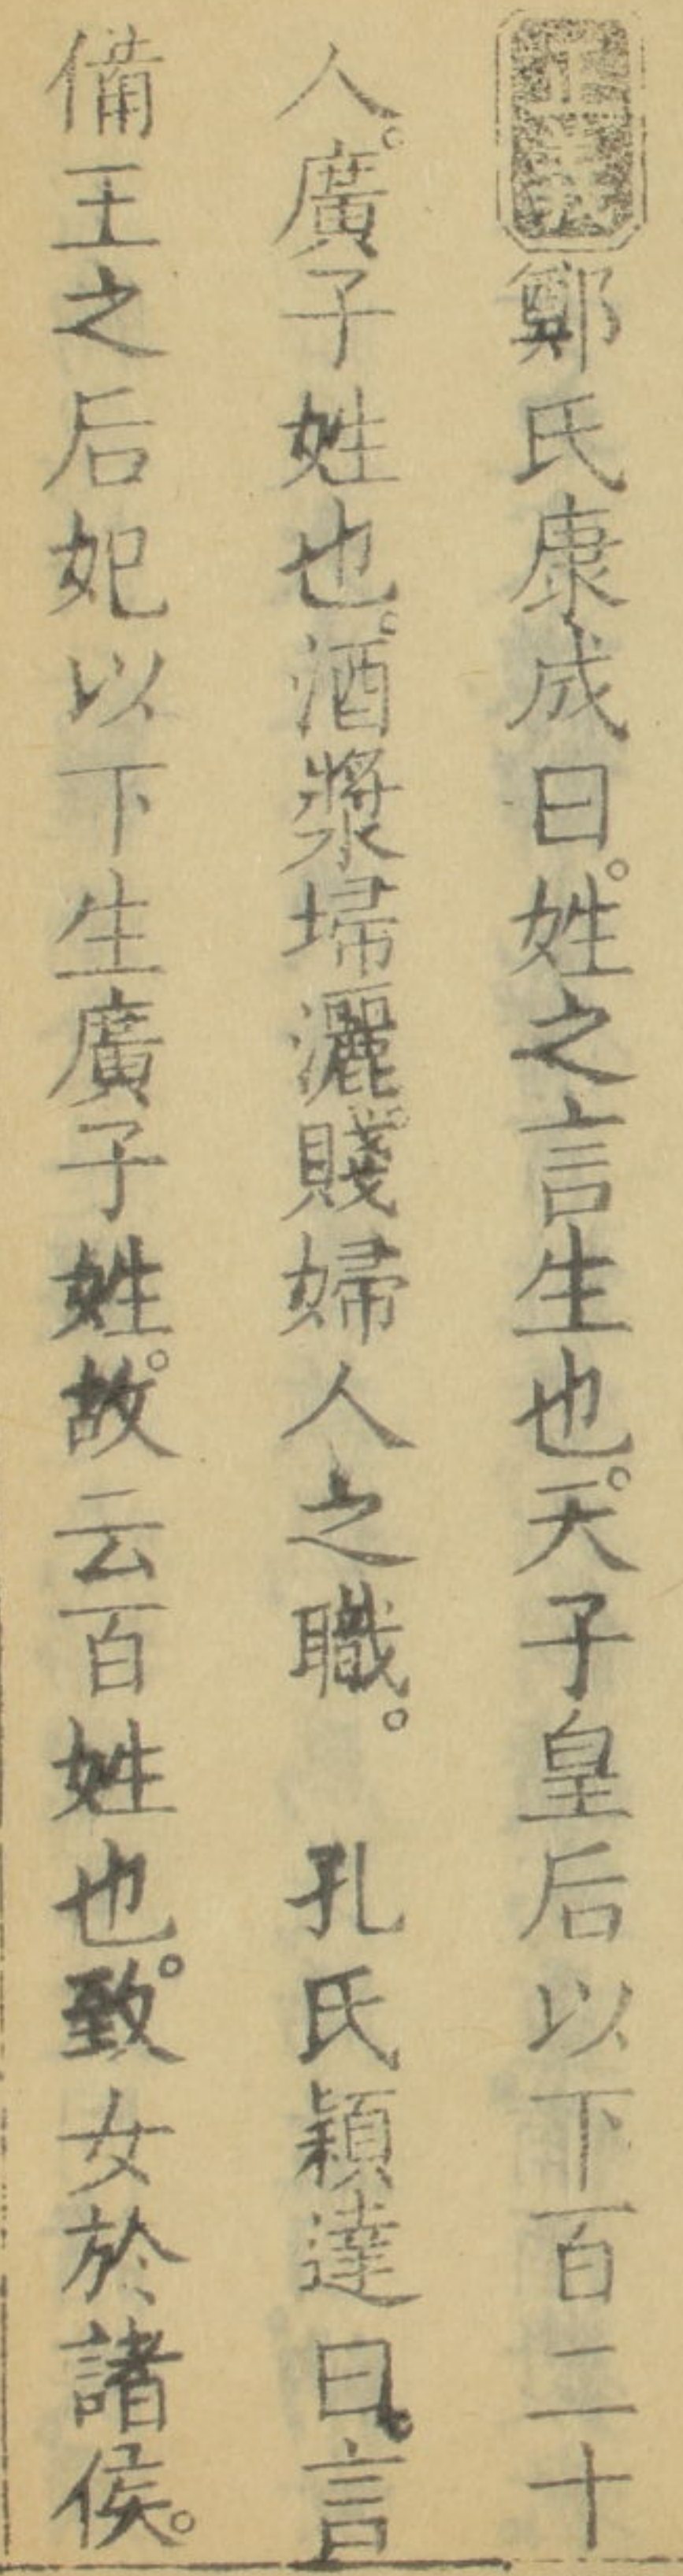 正義鄭氏康成曰。姓之言生也。天子皇后以下百二十
人。廣子姓也。酒漿埽灑。賤婦人之職。　孔氏穎達曰。言
備王之后妃以下生廣子姓。故云百姓也。致女於諸侯。